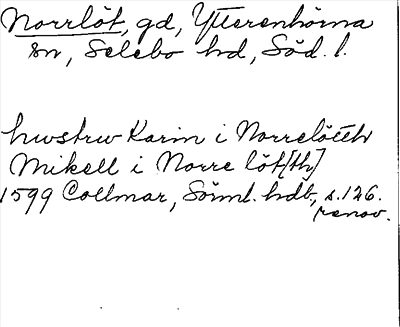 Norrlöt, gd, Ytterenhörna
sn, Selebo hd, Söd. l.
hwstrw Karin i Norrelötth
Mikell i Norre löt[th]
1599 Collmar, Sörml. hdb, s. 126.
renov.